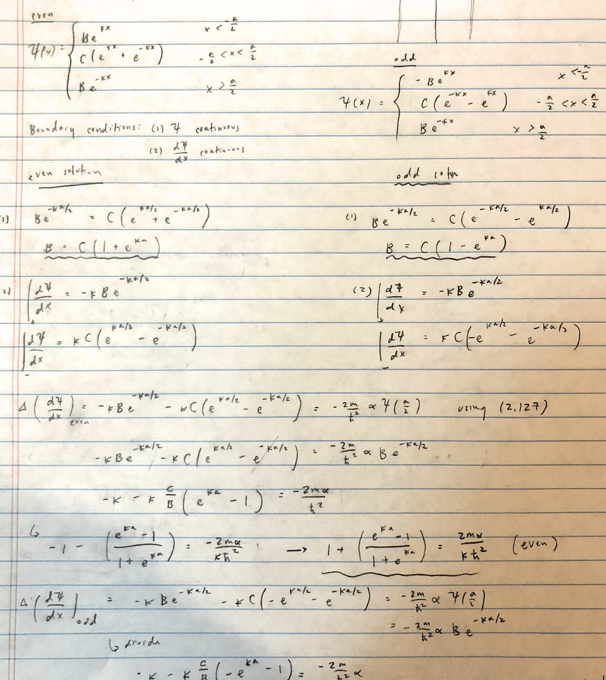 even
Ψ(x) = { Be^{κx}    x < -a/2
C(e^{κx} + e^{-κx})    -a/2 < x < a/2
Be^{-κx}    x > a/2
Boundary conditions: (1) Ψ continuous
(2) dΨ/dx continuous
even solution
(1) Be^{-κa/2} = C(e^{κa/2} + e^{-κa/2})
B = C(1 + e^{κa})
(2) |dΨ/dx = -κBe^{-κa/2}
+
|dΨ/dx = κC(e^{κa/2} - e^{-κa/2})
-
odd
Ψ(x) = { -Be^{κx}    x < -a/2
C(e^{-κx} - e^{κx})    -a/2 < x < a/2
Be^{-κx}    x > a/2
odd soln
(1) Be^{-κa/2} = C(e^{-κa/2} - e^{κa/2})
B = C(1 - e^{κa})
(2) |dΨ/dx = -κBe^{-κa/2}
+
|dΨ/dx = κC(-e^{κa/2} - e^{-κa/2})
-
Δ(dΨ/dx)_{even} = -κBe^{-κa/2} - κC(e^{κa/2} - e^{-κa/2}) = -2m/ħ² α Ψ(a/2)    using (2.127)
-κBe^{-κa/2} - κC(e^{κa/2} - e^{-κa/2}) = -2m/ħ² α Be^{-κa/2}
-κ - κ C/B (e^{κa} - 1) = -2mα/ħ²
↳ -1 - ((e^{κa} - 1)/(1 + e^{κa})) = -2mα/κħ² → 1 + ((e^{κa} - 1)/(1 + e^{κa})) = 2mα/κħ²    (even)
Δ(dΨ/dx)_{odd} = -κBe^{-κa/2} - κC(-e^{κa/2} - e^{-κa/2}) = -2m/ħ² α Ψ(a/2)
= -2m/ħ² α Be^{-κa/2}
↳ divide
-κ - κ C/B (-e^{κa} - 1) = -2m/ħ² α